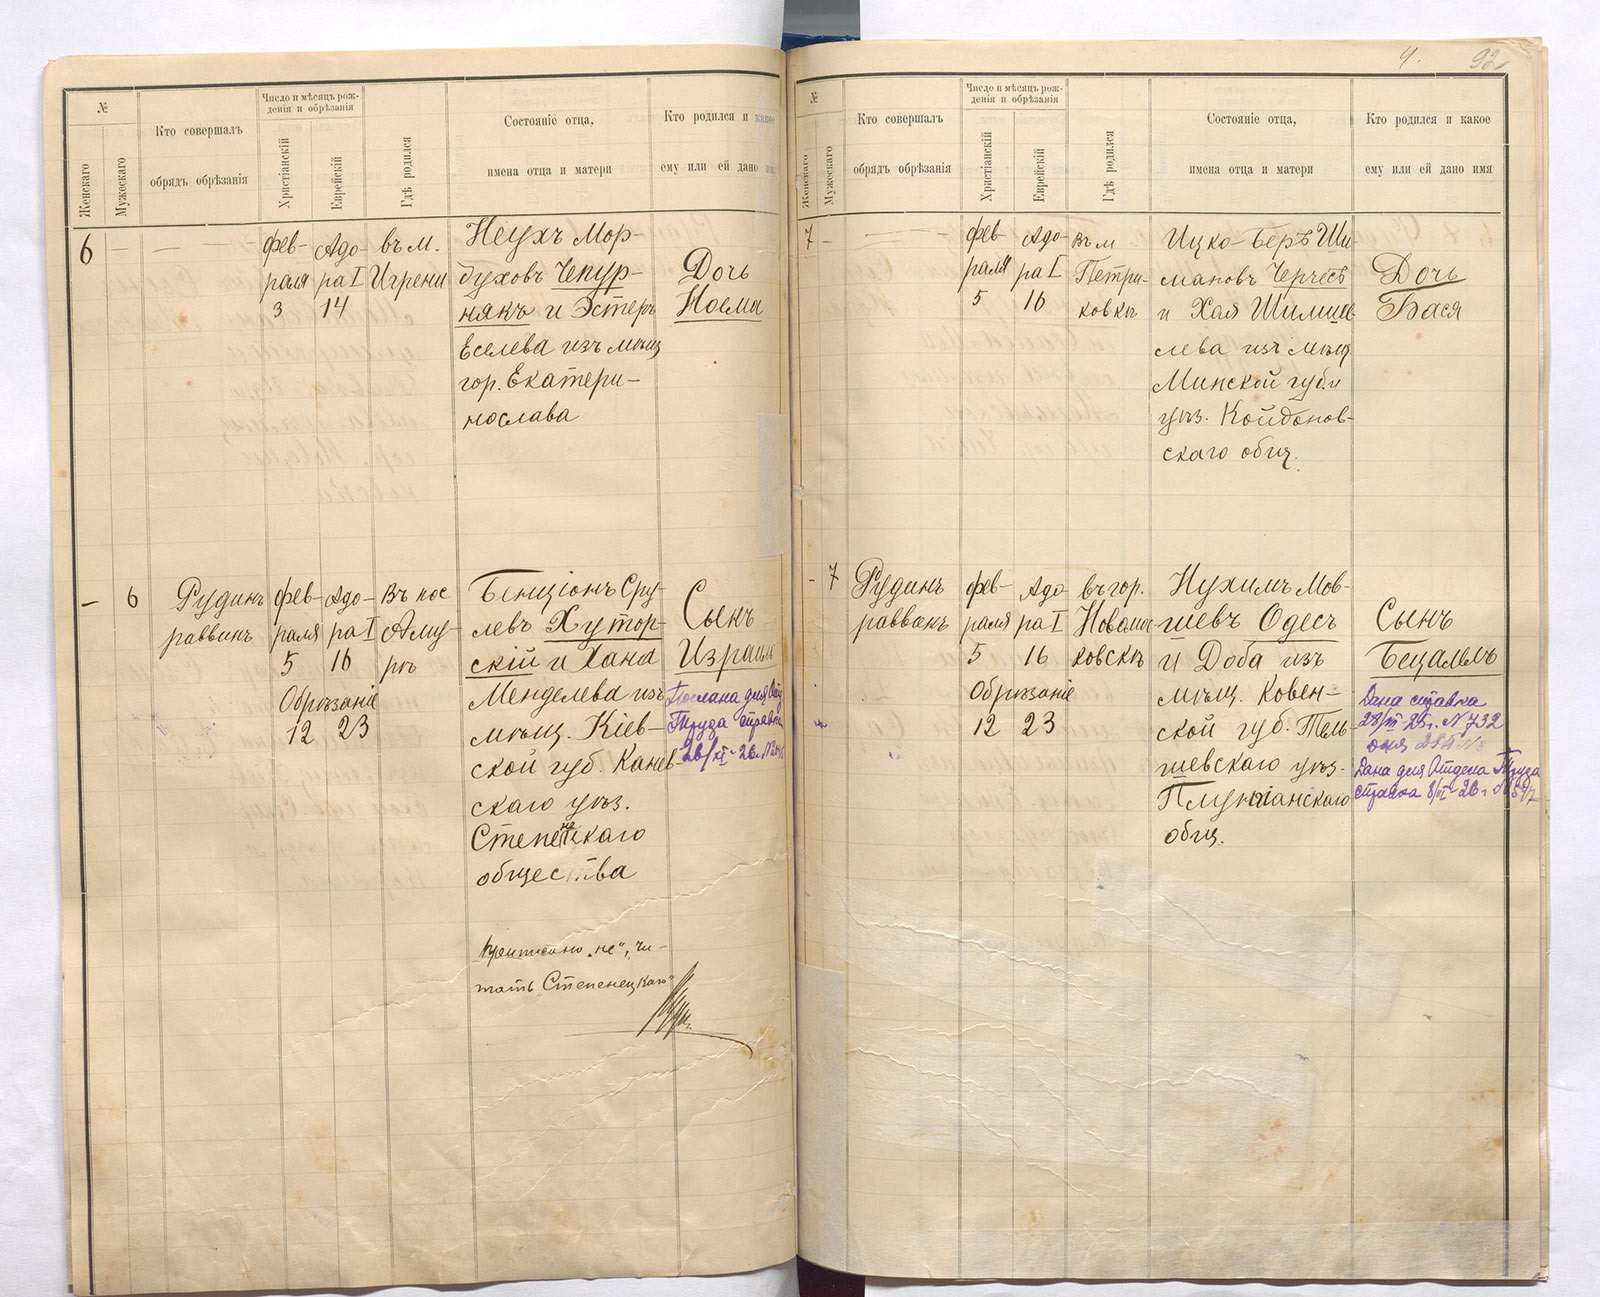 №
Женскаго
Мужескаго
Кто совершалъ
обрядъ обрѣзанія
Число и мѣсяцъ рож-
денія и обрѣзанія
Христіанскій
Еврейскій
Гдѣ родился
Состояніе отца,
имена отца и матери
Кто родился и какое
ему или ей дано имя
6
фев-
раля
3
Адо-
ра I
14
въ м.
Игрени
Неухъ Мор-
духовъ Чепур-
някъ и Эстеръ
Еселева изъ мѣщ
гор. Екатери-
нослава
Дочь
Ноема
6
Рудинъ
раввинъ
фев-
раля
5
Адо-
ра I
16
Обрѣзаніе
12 23
Въ пос
Аму-
рѣ
Бенціонъ Сру-
левъ Хутор-
скій и Хана
Менделева изъ
мѣщ. Кіев-
ской губ. Канев-
скаго уѣз.
не
Степенецкаго
общества
Сынъ
Израиль
Послана для
Труда справка
Приписано „не“, чи-
тать „Степенецкаго“
4.
92
№
Женскаго
Мужескаго
Кто совершалъ
обрядъ обрѣзанія
Число и мѣсяцъ рож-
денія и обрѣзанія
Христіанскій
Еврейскій
Гдѣ родился
Состояніе отца,
имена отца и матери
Кто родился и какое
ему или ей дано имя
7
фев-
раля
5
Адо-
ра I
16
въ м
Петри-
ковкѣ
Ицко-Беръ Ши-
мановъ Черчесъ
и Хая Шимше-
лева изъ мѣщ.
Минской губи
уѣз. Койданов-
скаго общ.
Дочь
Бася
7
Рудинъ
раввинъ
фев-
раля
5
Адо
ра I
16
Обрѣзаніе
12 23
въ гор.
Новомос
ковскѣ
Нухимъ Мов-
шевъ Одесъ
и Доба изъ
мѣщ. Ковен-
ской губ. Тель-
шевскаго уѣз.
Плунгіанскаго
общ.
Сынъ
Бецалель
Дана справка
28/VII-25г. N 732
для
Дана для Отдела Труда
справка 8/VI-26г.